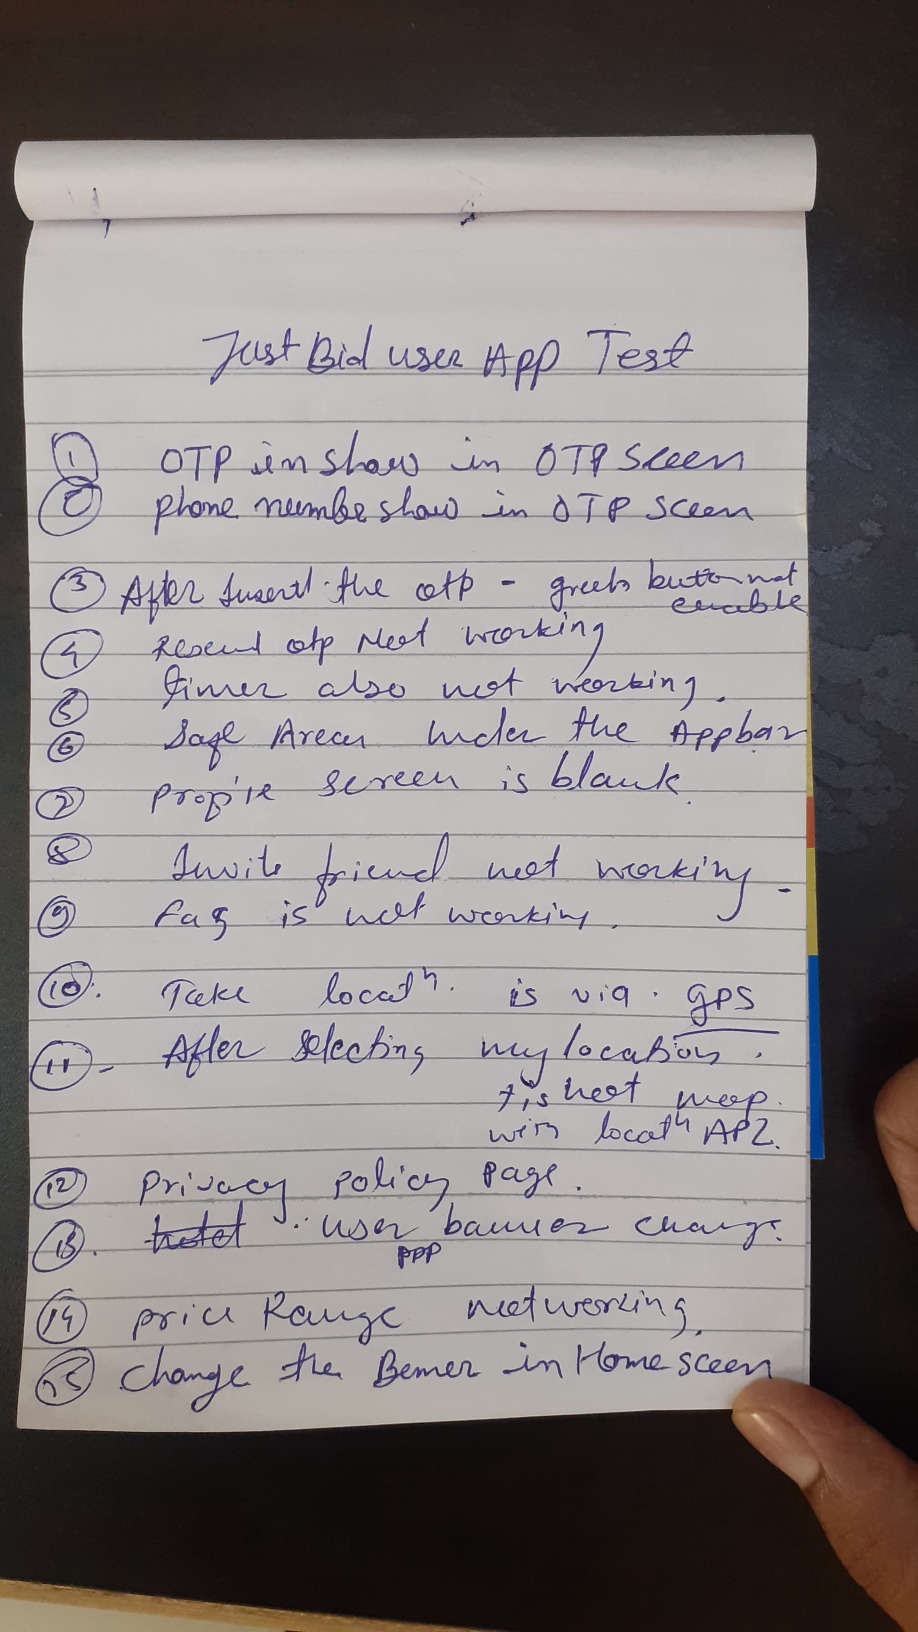 Just Bid user App Test
① OTP in show in OTP Sceen
② phone numbe show in OTP Sceen
③ After Insert the otp - green button not
enable
④ Resend otp Not working
⑤ Timer also not working.
⑥ Safe Area under the Appbar
⑦ Profile screen is blank.
⑧ Invite friend not working -
⑨ Faq is not working.
⑩. Take locatn. is via. GPS
⑪ - After selecting my location.
is not map.
with locatn API.
⑫ Privacy policy page.
⑬. user banner change.
app
⑭ price Range not working,
⑮ Change the Benner in Home sceen